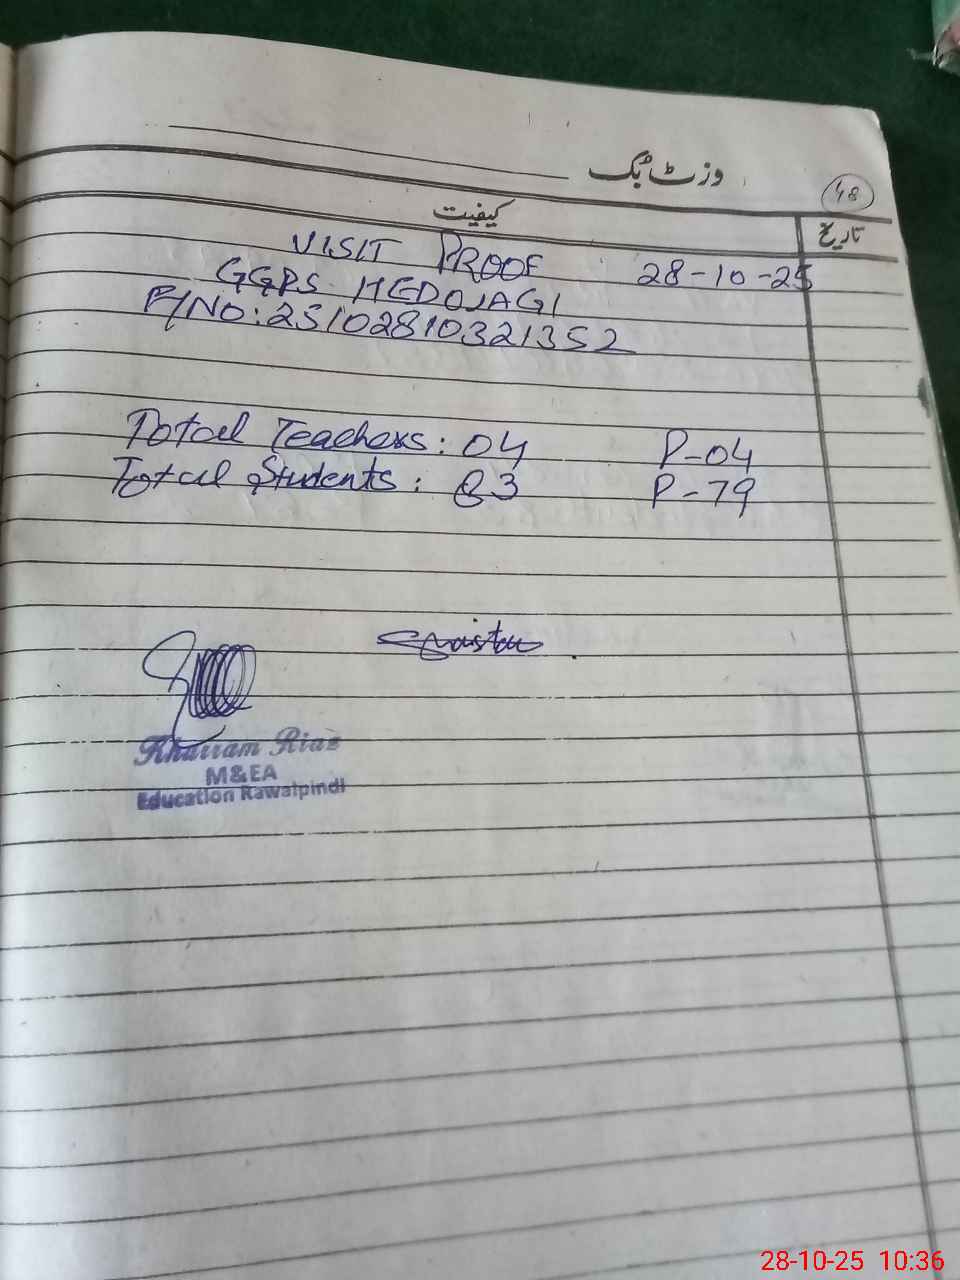 وزٹ بُک
48
کیفیت
تاریخ
VISIT PROOF 28-10-25
GGPS MEDOJAGI
F/NO: 25102810321352
Total Teachers: 04 P-04
Total Students: 83 P-79
Khurram Riaz
M&EA
Education Rawalpindi
28-10-25 10:36